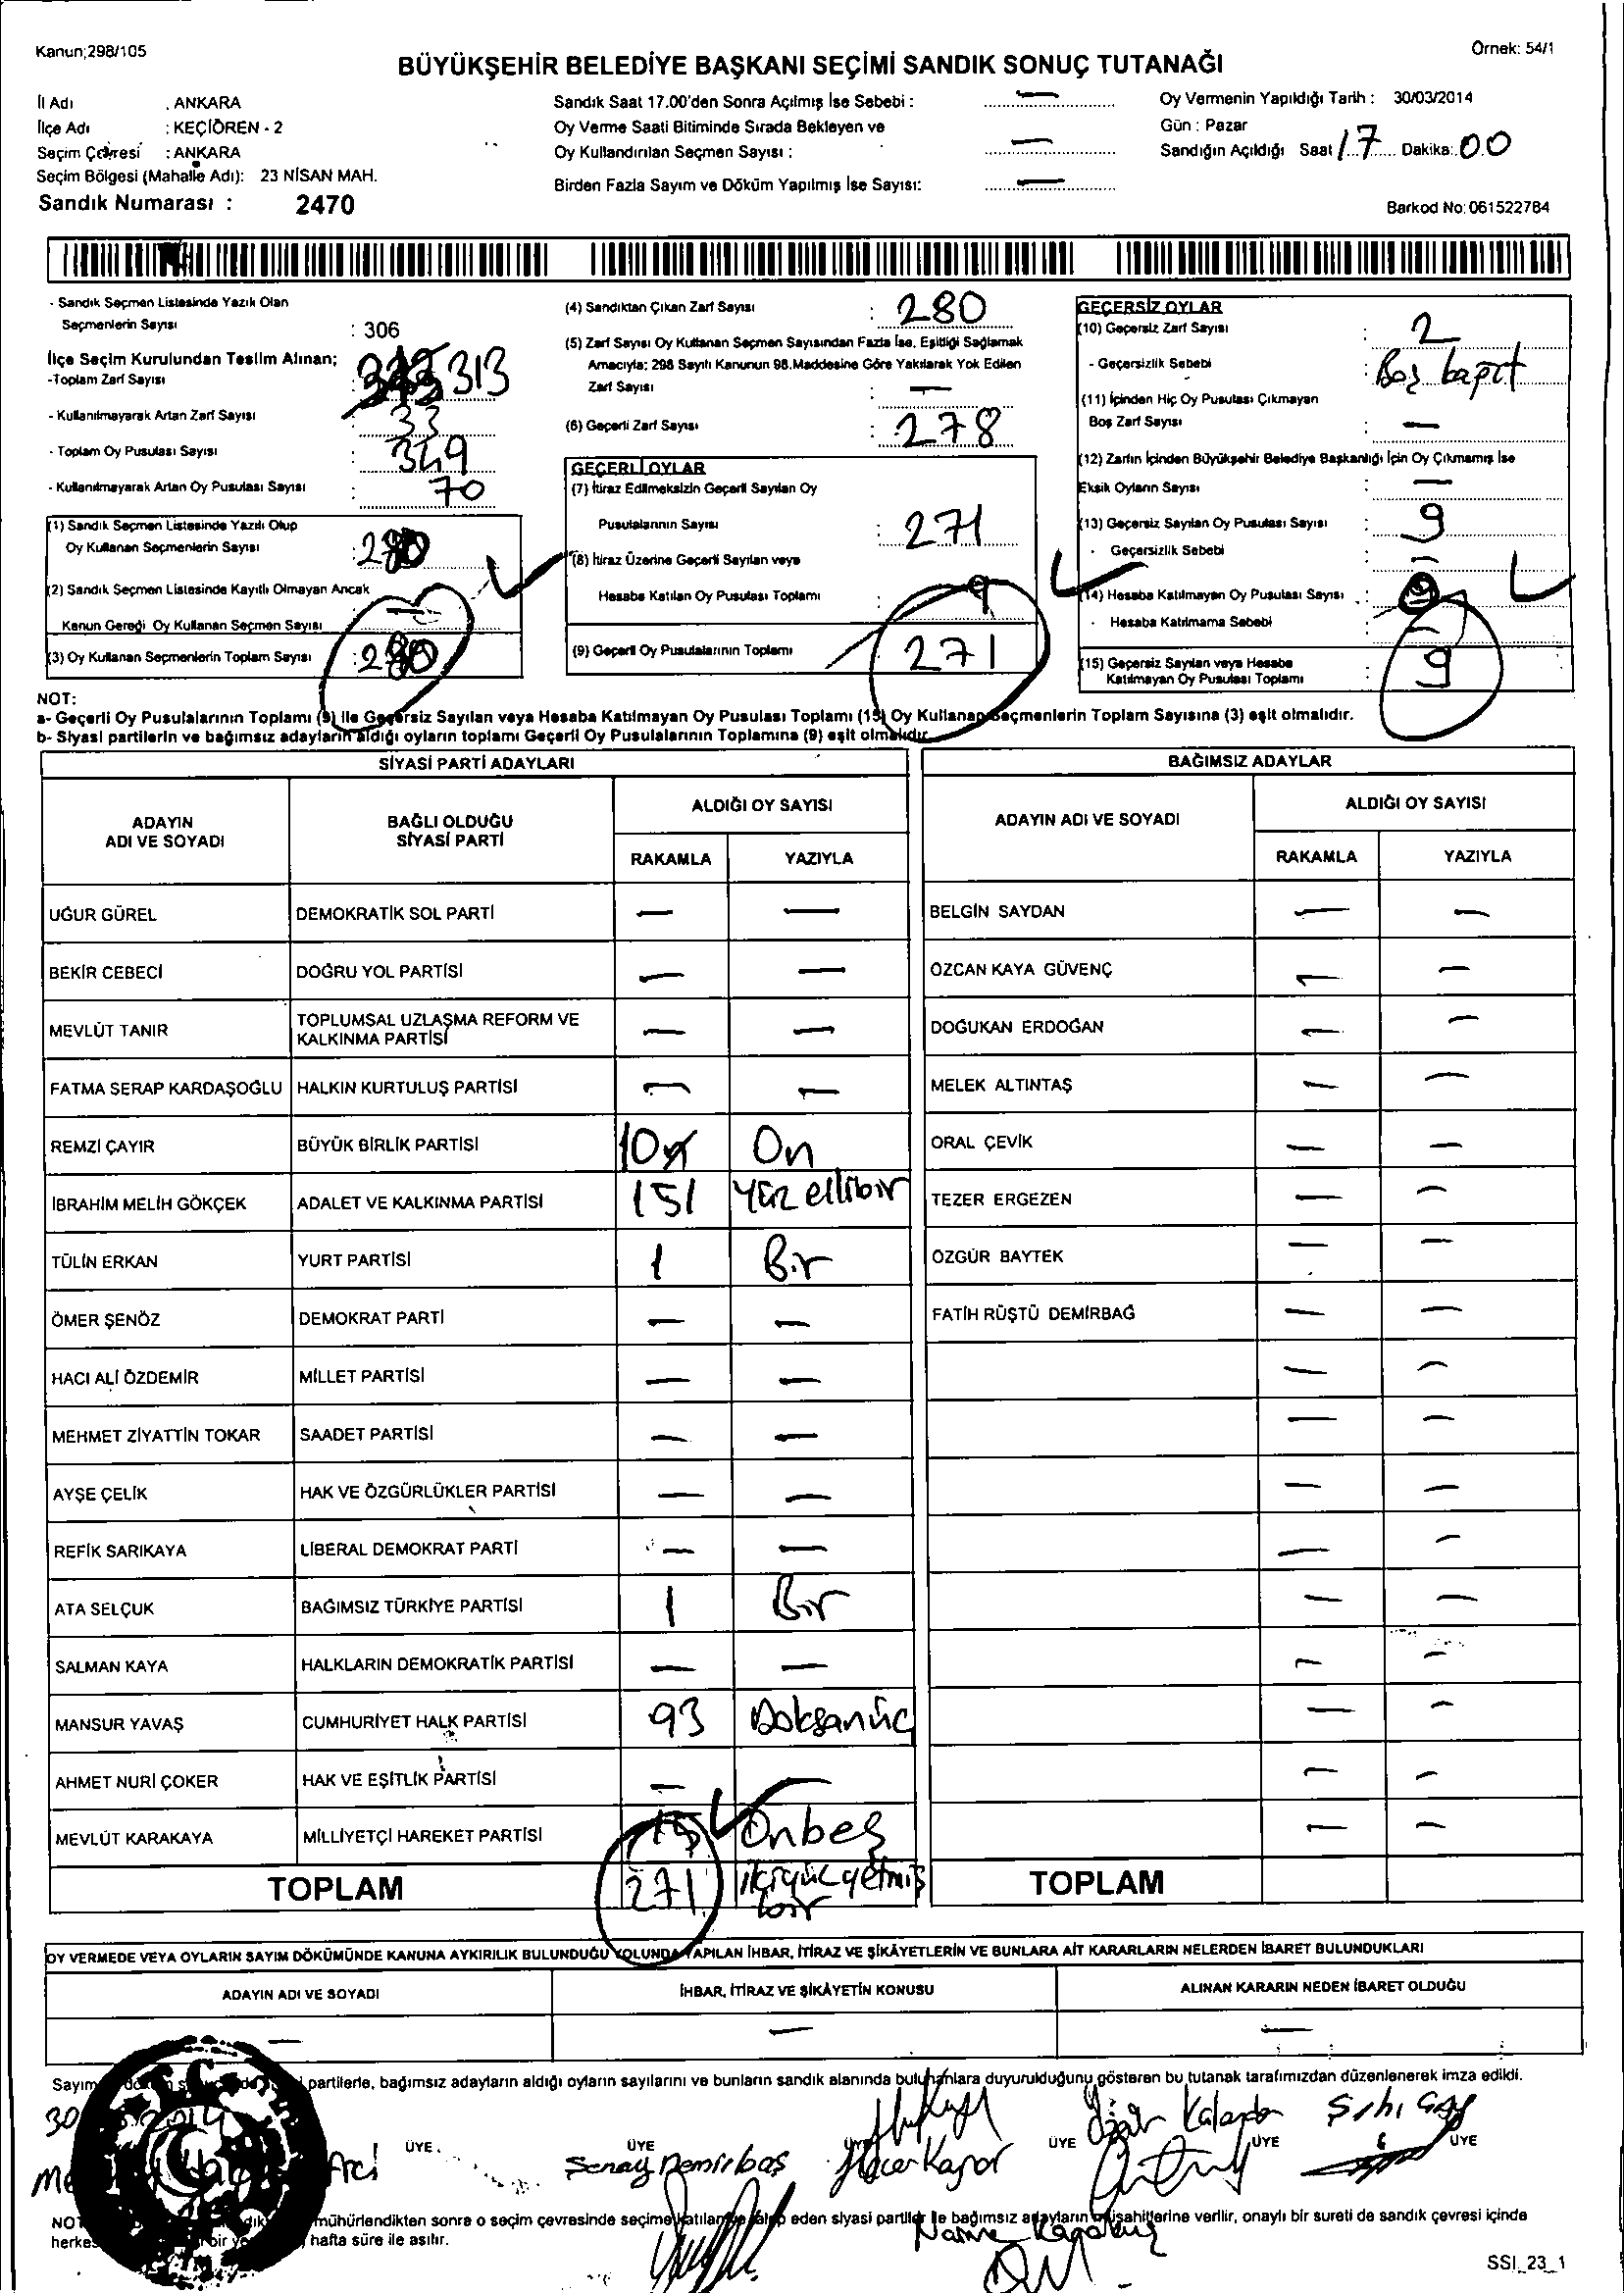 Kanun;298/105
Örnek: 54/1
BÜYÜKŞEHİR BELEDİYE BAŞKANI SEÇİMİ SANDIK SONUÇ TUTANAĞI
İl Adı : ANKARA
İlçe Adı : KEÇİÖREN - 2
Seçim Çevresi : ANKARA
Seçim Bölgesi (Mahalle Adı): 23 NİSAN MAH.
Sandık Numarası : 2470
Sandık Saat 17.00'den Sonra Açılmış İse Sebebi : —
Oy Verme Saati Bitiminde Sırada Bekleyen ve
Oy Kullandırılan Seçmen Sayısı : —
Birden Fazla Sayım ve Döküm Yapılmış İse Sayısı: —
Oy Vermenin Yapıldığı Tarih : 30/03/2014
Gün : Pazar
Sandığın Açıldığı Saat 17 Dakika: 00
Barkod No: 061522784
- Sandık Seçmen Listesinde Yazılı Olan
Seçmenlerin Sayısı : 306
İlçe Seçim Kurulundan Teslim Alınan;
-Toplam Zarf Sayısı 313
- Kullanılmayarak Artan Zarf Sayısı : 33
- Toplam Oy Pusulası Sayısı : 349
- Kullanılmayarak Artan Oy Pusulası Sayısı : 70
(1) Sandık Seçmen Listesinde Yazılı Olup
Oy Kullanan Seçmenlerin Sayısı : 280
(2) Sandık Seçmen Listesinde Kayıtlı Olmayan Ancak
Kanun Gereği Oy Kullanan Seçmen Sayısı : —
(3) Oy Kullanan Seçmenlerin Toplam Sayısı : 280
(4) Sandıktan Çıkan Zarf Sayısı : 280
(5) Zarf Sayısı Oy Kullanan Seçmen Sayısından Fazla İse, Eşitliği Sağlamak
Amacıyla; 298 Sayılı Kanunun 98.Maddesine Göre Yakılarak Yok Edilen
Zarf Sayısı : —
(6) Geçerli Zarf Sayısı : 278
GEÇERLİ OYLAR
(7) İtiraz Edilmeksizin Geçerli Sayılan Oy
Pusulalarının Sayısı : 271
(8) İtiraz Üzerine Geçerli Sayılan veya
Hesaba Katılan Oy Pusulası Toplamı : 9
(9) Geçerli Oy Pusulalarının Toplamı : 271
GEÇERSİZ OYLAR
(10) Geçersiz Zarf Sayısı : 2
- Geçersizlik Sebebi : Boş
(11) İçinden Hiç Oy Pusulası Çıkmayan
Boş Zarf Sayısı : —
(12) Zarfın İçinden Büyükşehir Belediye Başkanlığı İçin Oy Çıkmamış İse
Eksik Oyların Sayısı : —
(13) Geçersiz Sayılan Oy Pusulası Sayısı : 9
- Geçersizlik Sebebi : —
(14) Hesaba Katılmayan Oy Pusulası Sayısı :
- Hesaba Katılmama Sebebi : —
(15) Geçersiz Sayılan veya Hesaba
Katılmayan Oy Pusulası Toplamı : 9
NOT:
a- Geçerli Oy Pusulalarının Toplamı (9) ile Geçersiz Sayılan veya Hesaba Katılmayan Oy Pusulası Toplamı (15) Oy Kullanan Seçmenlerin Toplam Sayısına (3) eşit olmalıdır.
b- Siyasi partilerin ve bağımsız adayların aldığı oyların toplamı Geçerli Oy Pusulalarının Toplamına (9) eşit olmalıdır.
SİYASİ PARTİ ADAYLARI
ADAYIN ADI VE SOYADI BAĞLI OLDUĞU SİYASİ PARTİ ALDIĞI OY SAYISI
RAKAMLA YAZIYLA
UĞUR GÜREL DEMOKRATİK SOL PARTİ — —
BEKİR CEBECİ DOĞRU YOL PARTİSİ — —
MEVLÜT TANIR TOPLUMSAL UZLAŞMA REFORM VE KALKINMA PARTİSİ — —
FATMA SERAP KARDAŞOĞLU HALKIN KURTULUŞ PARTİSİ — —
REMZİ ÇAYIR BÜYÜK BİRLİK PARTİSİ 10 On
İBRAHİM MELİH GÖKÇEK ADALET VE KALKINMA PARTİSİ 151 Yüz ellibir
TÜLİN ERKAN YURT PARTİSİ 1 Bir
ÖMER ŞENÖZ DEMOKRAT PARTİ — —
HACI ALİ ÖZDEMİR MİLLET PARTİSİ — —
MEHMET ZİYATTİN TOKAR SAADET PARTİSİ — —
AYŞE ÇELİK HAK VE ÖZGÜRLÜKLER PARTİSİ — —
REFİK SARIKAYA LİBERAL DEMOKRAT PARTİ — —
ATA SELÇUK BAĞIMSIZ TÜRKİYE PARTİSİ 1 Bir
SALMAN KAYA HALKLARIN DEMOKRATİK PARTİSİ — —
MANSUR YAVAŞ CUMHURİYET HALK PARTİSİ 93 Doksanüç
AHMET NURİ ÇOKER HAK VE EŞİTLİK PARTİSİ — —
MEVLÜT KARAKAYA MİLLİYETÇİ HAREKET PARTİSİ 15 Onbeş
TOPLAM 271 ikiyüz yetmiş bir
BAĞIMSIZ ADAYLAR
ADAYIN ADI VE SOYADI ALDIĞI OY SAYISI
RAKAMLA YAZIYLA
BELGİN SAYDAN — —
ÖZCAN KAYA GÜVENÇ — —
DOĞUKAN ERDOĞAN — —
MELEK ALTINTAŞ — —
ORAL ÇEVİK — —
TEZER ERGEZEN — —
ÖZGÜR BAYTEK — —
FATİH RÜŞTÜ DEMİRBAĞ — —
TOPLAM
OY VERMEDE VEYA OYLARIN SAYIM DÖKÜMÜNDE KANUNA AYKIRILIK BULUNDUĞU YOLUNDA YAPILAN İHBAR, İTİRAZ VE ŞİKÂYETLERİN VE BUNLARA AİT KARARLARIN NELERDEN İBARET BULUNDUKLARI
ADAYIN ADI VE SOYADI İHBAR, İTİRAZ VE ŞİKÂYETİN KONUSU ALINAN KARARIN NEDEN İBARET OLDUĞU
— — —
Sayım partilerle, bağımsız adayların aldığı oyların sayılarını ve bunların sandık alanında bulunanlara duyurulduğunu gösteren bu tutanak tarafımızdan düzenlenerek imza edildi.
ÜYE ÜYE ÜYE ÜYE ÜYE ÜYE
Şenay Demirbaş
NOT mühürlendikten sonra o seçim çevresinde seçime katılan eden siyasi partiler ile bağımsız adayların müşahitlerine verilir, onaylı bir sureti de sandık çevresi içinde
hafta süre ile asılır.
SSI_23_1